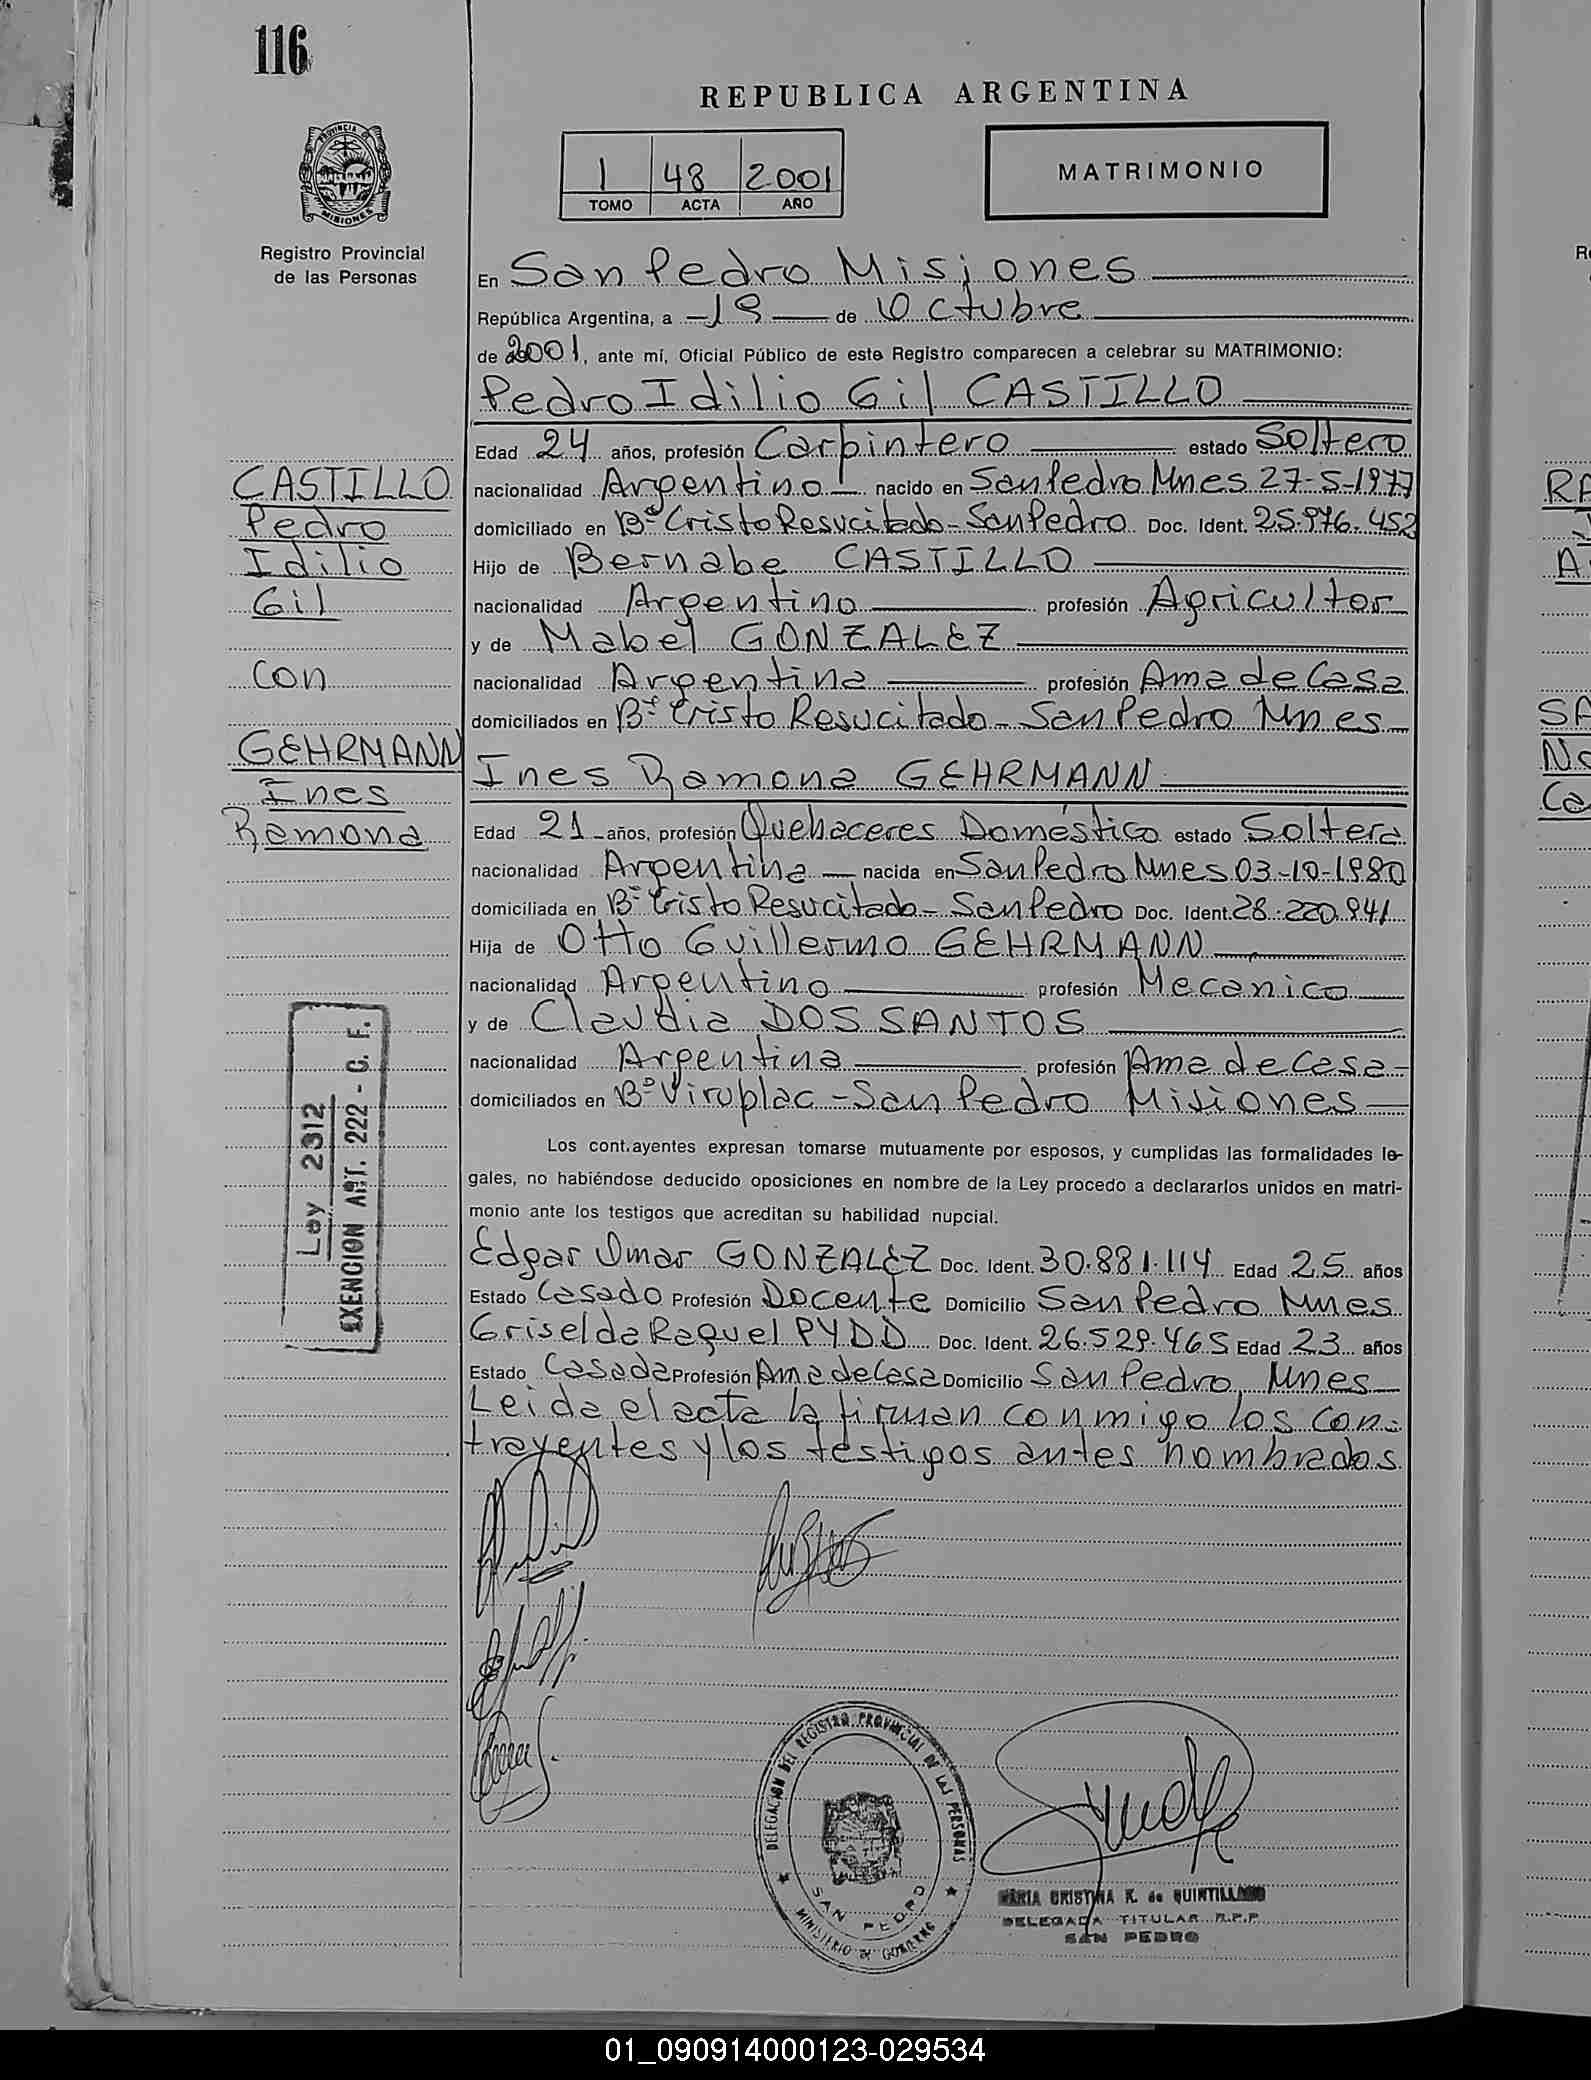 116
REPUBLICA ARGENTINA
1 48 2001
TOMO ACTA AÑO
MATRIMONIO
PROVINCIA DE
MISIONES
Registro Provincial
de las Personas
En San Pedro Misiones
República Argentina, a -19- de Octubre
de 2001, ante mí, Oficial Público de este Registro comparecen a celebrar su MATRIMONIO:
Pedro Idilio Gil CASTILLO
Edad 24 años, profesión Carpintero estado Soltero
nacionalidad Argentino nacido en San Pedro Mnes 27-5-1977
domiciliado en Bº Cristo Resucitado - San Pedro Doc. Ident. 25.976.452
Hijo de Bernabe CASTILLO
nacionalidad Argentino profesión Agricultor
y de Mabel GONZALEZ
nacionalidad Argentina profesión Ama de Casa
domiciliados en Bº Cristo Resucitado - San Pedro Mnes
Ines Ramona GEHRMANN
Edad 21 años, profesión Quehaceres Doméstico estado Soltera
nacionalidad Argentina nacida en San Pedro Mnes 03-10-1980
domiciliada en Bº Cristo Resucitado - San Pedro Doc. Ident. 28.220.941
Hija de Otto Guillermo GEHRMANN
nacionalidad Argentino profesión Mecanico
y de Claudia DOS SANTOS
nacionalidad Argentina profesión Ama de Casa
domiciliados en Bº Viruplac - San Pedro Misiones
Los cont.ayentes expresan tomarse mutuamente por esposos, y cumplidas las formalidades le-
gales, no habiéndose deducido oposiciones en nombre de la Ley procedo a declararlos unidos en matri-
monio ante los testigos que acreditan su habilidad nupcial.
Edgar Omar GONZALEZ Doc. Ident. 30.881.114 Edad 25 años
Estado Casado Profesión Docente Domicilio San Pedro Mnes
Griselda Raquel PYDD Doc. Ident. 26.529.465 Edad 23 años
Estado Casada Profesión Ama de Casa Domicilio San Pedro, Mnes
Leida el acta la firman conmigo los con-
trayentes y los testigos antes nombrados
CASTILLO
Pedro
Idilio
Gil
con
GEHRMANN
Ines
Ramona
Ley 2312
EXENCION ART. 222 - C. F.
DELEGACION DEL REGISTRO PROVINCIAL DE LAS PERSONAS
SAN PEDRO
MINISTERIO DE GOBIERNO
MARIA CRISTINA K. de QUINTILLANO
DELEGADA TITULAR R.P.P.
SAN PEDRO
01_090914000123-029534